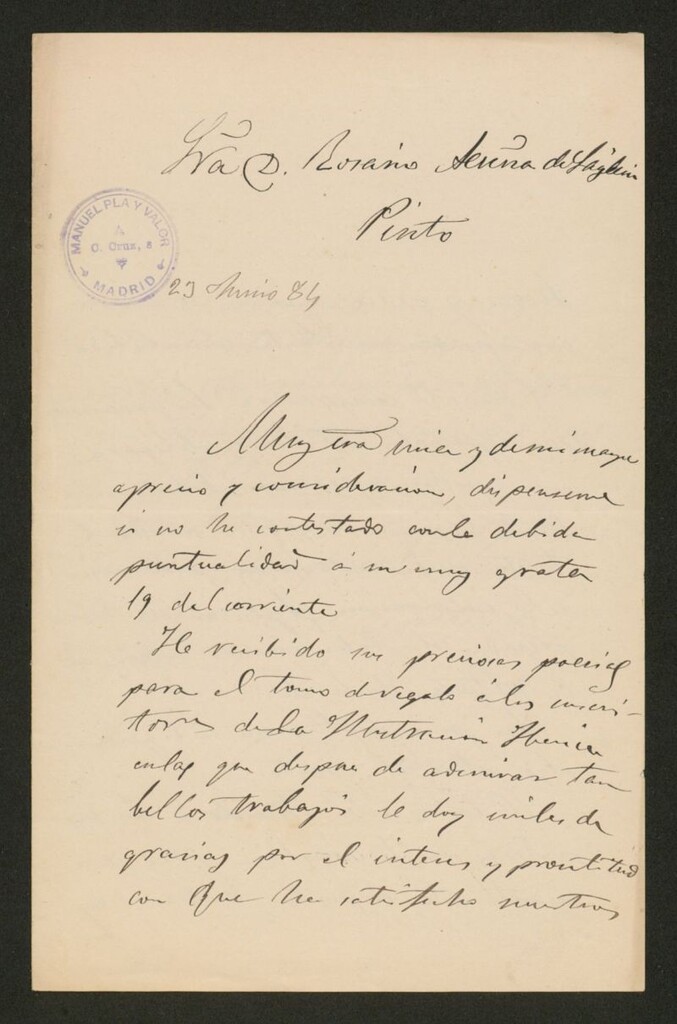 Sra D. Rosario Acuña de Laiglesia
Pinto
MANUEL PLA Y VALOR
C. Cruz, 8
MADRID
23 Junio 84
Muy sra mia y de mi mayor
aprecio y consideracion, dispenseme
si no he contestado con la debida
puntualidad á su muy grata
19 del corriente
He recibido sus preciosas poesias
para el tomo de regalo á los suscri-
tores de La Ilustración Iberica
que despues de admirar tan
bellos trabajos le doy miles de
gracias por el interes y prontitud
con que ha satisfecho nuestros